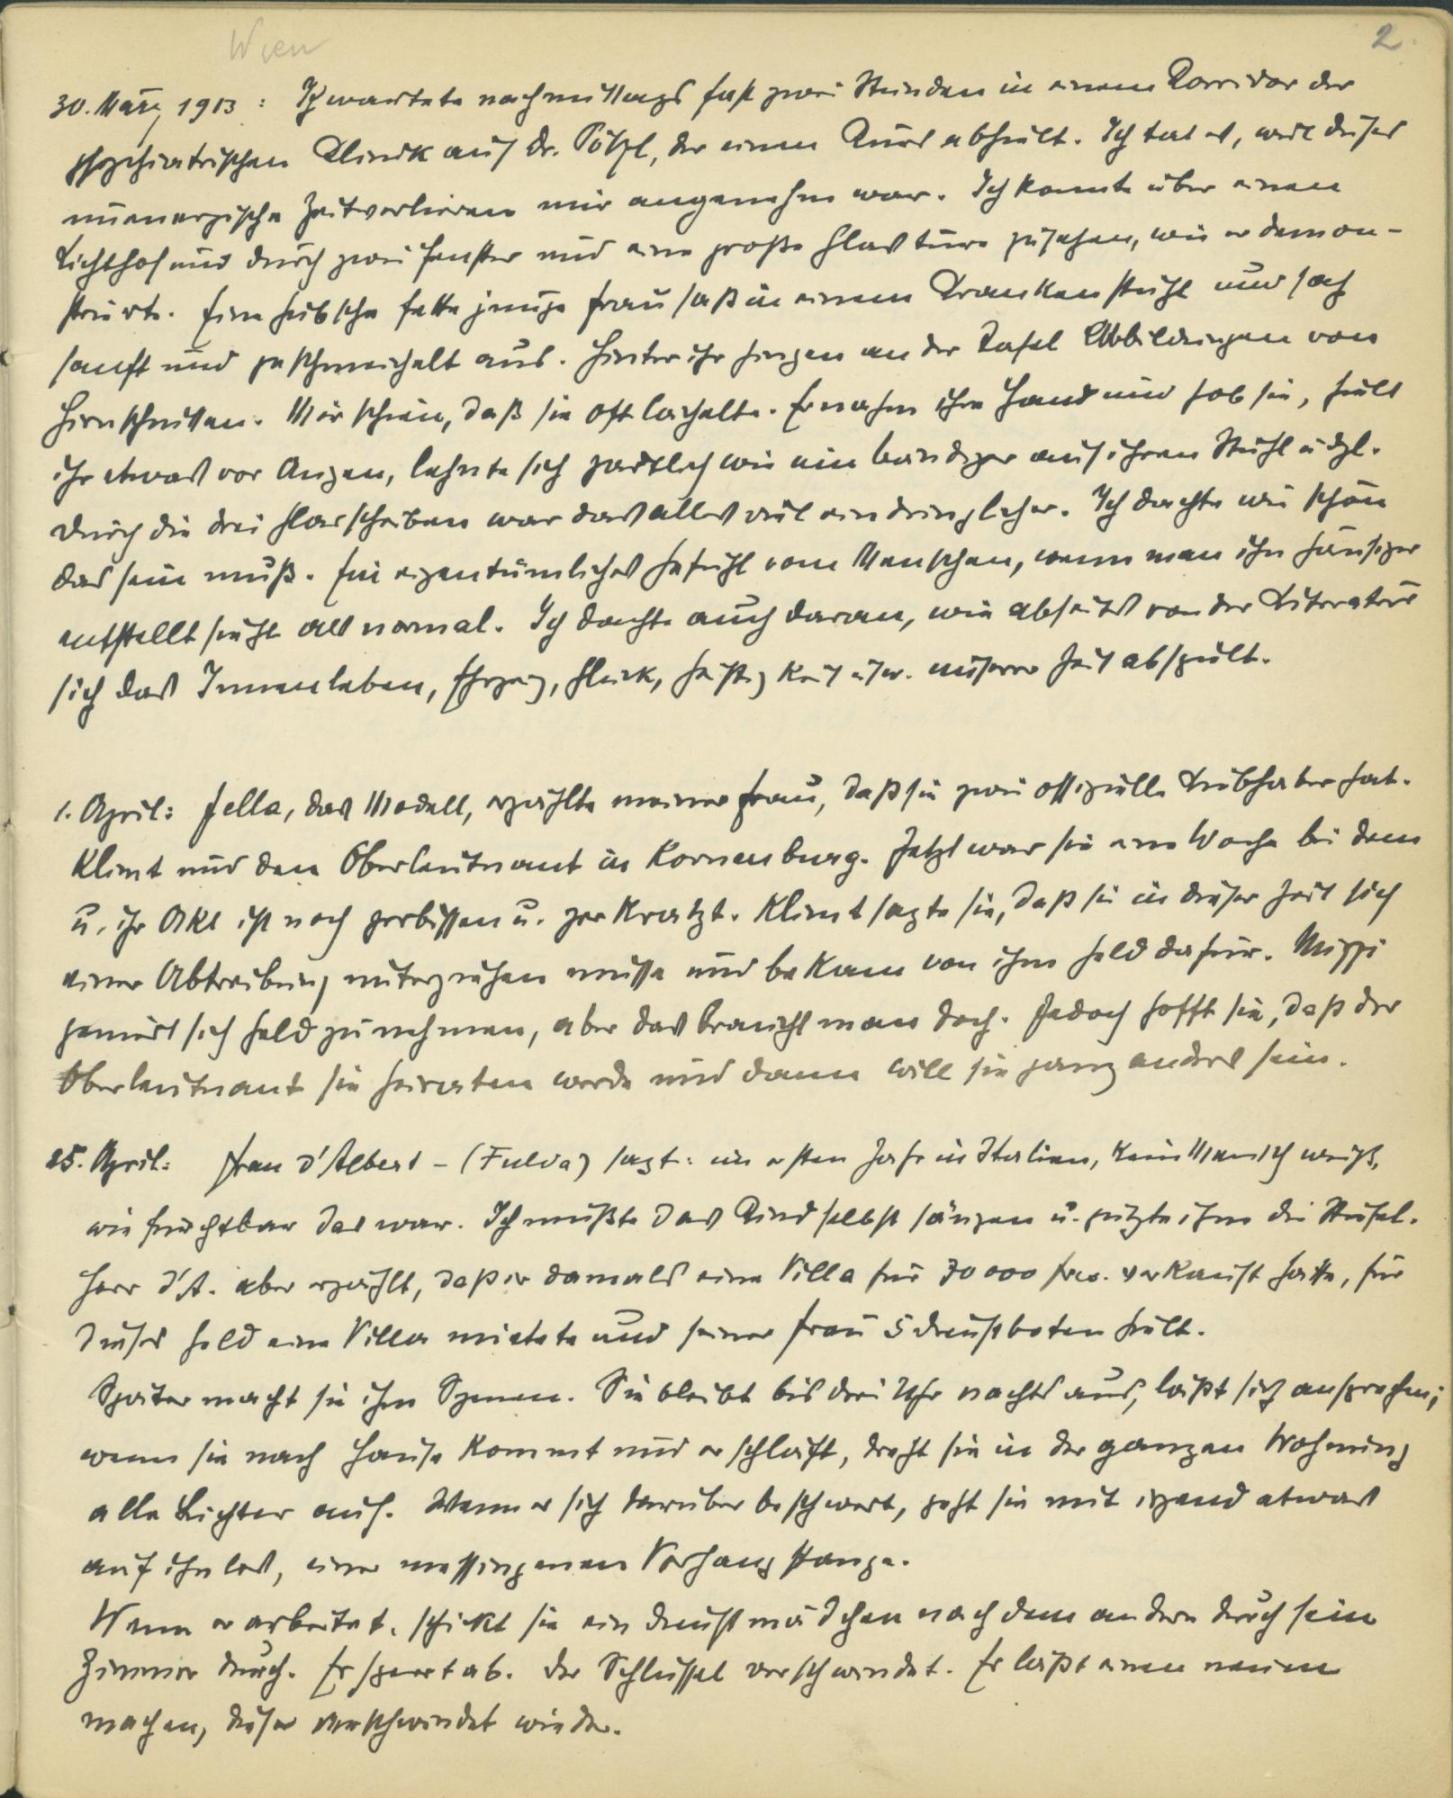 Wien
2.
30. März 1913: Ich wartete nachmittags fast zwei Stunden in einem Korridor der
psychiatrischen Klinik auf Dr. Pötzl, der einen Kurs abhielt. Ich tat es, weil dieses
unenergische Zeitverlieren mir angenehm war. Ich konnte über einen
Lichthof und durch zwei Fenster und eine große Glastüre zusehen, wie er demon-
strierte. Eine hübsche fette junge Frau saß in einem Krankenstuhl und sah
sanft und geschmeichelt aus. Hinter ihr hingen an der Tafel Abbildungen von
Hirnschnitten. Mir schien, daß sie oft lächelte. Er nahm ihre Hand und hob sie, hielt
ihr etwas vor Augen, lehnte sich zärtlich wie ein Bändiger auf ihren Stuhl udgl.
Durch die drei Glasscheiben war das alles viel eindringlicher. Ich dachte wie schön
das sein muß. Ein eigentümliches Gefühl vom Menschen, wenn man ihn häufiger
entstellt sieht als normal. Ich dachte auch daran, wie abseits von der Literatur
sich das Innenleben, Ehrgeiz, Glück, Geistigkeit usw. unserer Zeit abspielt.
1. April: Jella, das Modell, erzählte meiner Frau, daß sie zwei offizielle Liebhaber hat.
Klimt und den Oberleutnant in Korneuburg. Jetzt war sie eine Woche bei dem
u. ihr Akt ist noch zerbissen u. zerkratzt. Klimt sagte sie, daß sie in dieser Zeit sich
einer Abtreibung unterziehen müsse und bekam von ihm Geld dafür. Mizzi
geniert sich Geld zu nehmen, aber das braucht man doch. Jedoch hofft sie, daß der
Oberleutnant sie heiraten werde und dann will sie ganz anders sein.
25. April: Frau d'Albert - (Fulda) sagt: im ersten Jahr in Italien, kein Mensch weiß,
wie furchtbar das war. Ich mußte das Kind selbst säugen u. putzte ihm die Stiefel.
Herr d'A. aber erzählt, daß er damals eine Villa für 70000 frcs. verkauft hatte, für
dieses Geld eine Villa mietete und seiner Frau 5 Dienstboten hielt.
Später macht sie ihm Szenen. Sie bleibt bis drei Uhr nachts aus, läßt sich ansprechen;
wenn sie nach Hause kommt und er schläft, dreht sie in der ganzen Wohnung
alle Lichter auf. Wenn er sich darüber beschwert, geht sie mit irgend etwas
auf ihn los, einer messingenen Vorhangstange.
Wenn er arbeitet, schickt sie ein Dienstmädchen nach dem andern durch sein
Zimmer durch. Er sperrt ab. Der Schlüssel verschwindet. Er läßt einen neuen
machen, dieser verschwindet wieder.